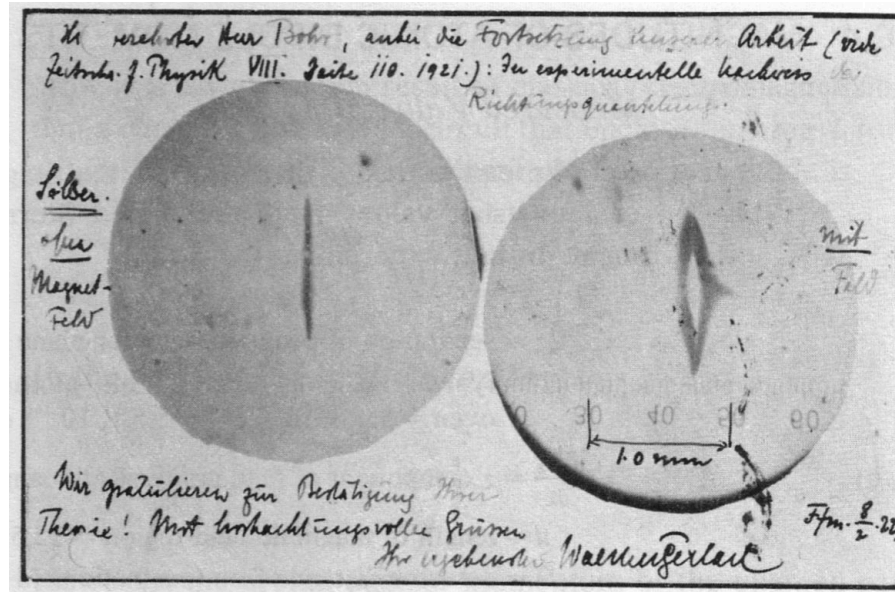 verehrter Herr Bohr, anbei die Fortsetzung unserer Arbeit (vide
Zeitschr. f. Physik VIII. Seite 110. 1921.): Der experimentelle Nachweis der
Richtungsquantelung.
Silber.
ohne
Magnet-
Feld
mit
Feld
30 40 50 60
1.0 mm
Wir gratulieren zur Bestätigung Ihrer
Theorie! Mit hochachtungsvollen Grüssen
Ihr ergebenster Walther Gerlach
Ffm. 8/2.22